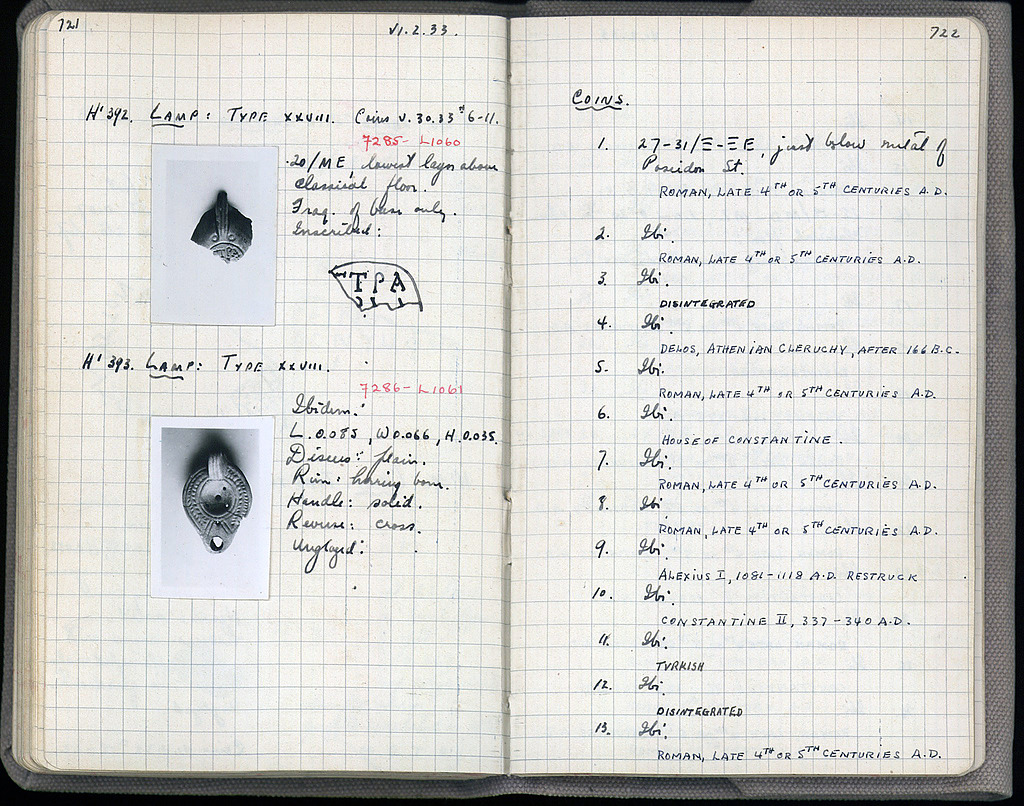 721
VI.2.33.
H' 392. LAMP: TYPE XXVIII. Coins V.30.33 #6-11.
7285 - L1060
20/ME, lowest layer above
classical floor.
Frag. of base only.
Inscribed:
ΤΡΑ
H' 393. LAMP: TYPE XXVIII.
7286 - L1061
Ibidem.
L. 0.085, W 0.066, H. 0.035.
Discus: plain.
Rim: herring bone.
Handle: solid.
Reverse: cross.
Unglazed.
722
COINS.
1. 27-31/Ξ-ΞE, just below metal of
Poseidon St.
ROMAN, LATE 4TH OR 5TH CENTURIES A.D.
2. Ibi.
ROMAN, LATE 4TH OR 5TH CENTURIES A.D.
3. Ibi.
DISINTEGRATED
4. Ibi.
DELOS, ATHENIAN CLERUCHY, AFTER 166 B.C.
5. Ibi.
ROMAN, LATE 4TH OR 5TH CENTURIES A.D.
6. Ibi.
HOUSE OF CONSTANTINE.
7. Ibi.
ROMAN, LATE 4TH OR 5TH CENTURIES A.D.
8. Ibi
ROMAN, LATE 4TH OR 5TH CENTURIES A.D.
9. Ibi.
ALEXIUS I, 1081-1118 A.D. RESTRUCK
10. Ibi.
CONSTANTINE II, 337-340 A.D.
11. Ibi.
TURKISH
12. Ibi.
DISINTEGRATED
13. Ibi.
ROMAN, LATE 4TH OR 5TH CENTURIES A.D.